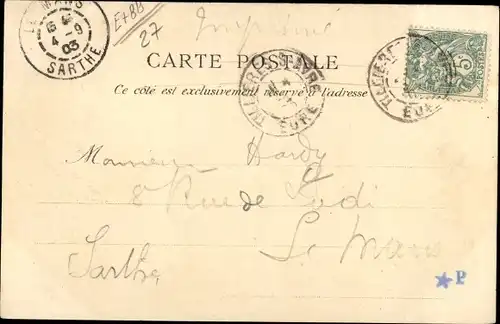 LE MANS
6 E
4 - 9
03
SARTHE
27
Imprimé
CARTE POSTALE
Ce côté est exclusivement réservé à l'adresse
TILLIÈRES S. AVRE
EURE
TILLIÈRES
EURE
Monsieur Hardy
8 Rue de
Le Mans
Sarthe
P